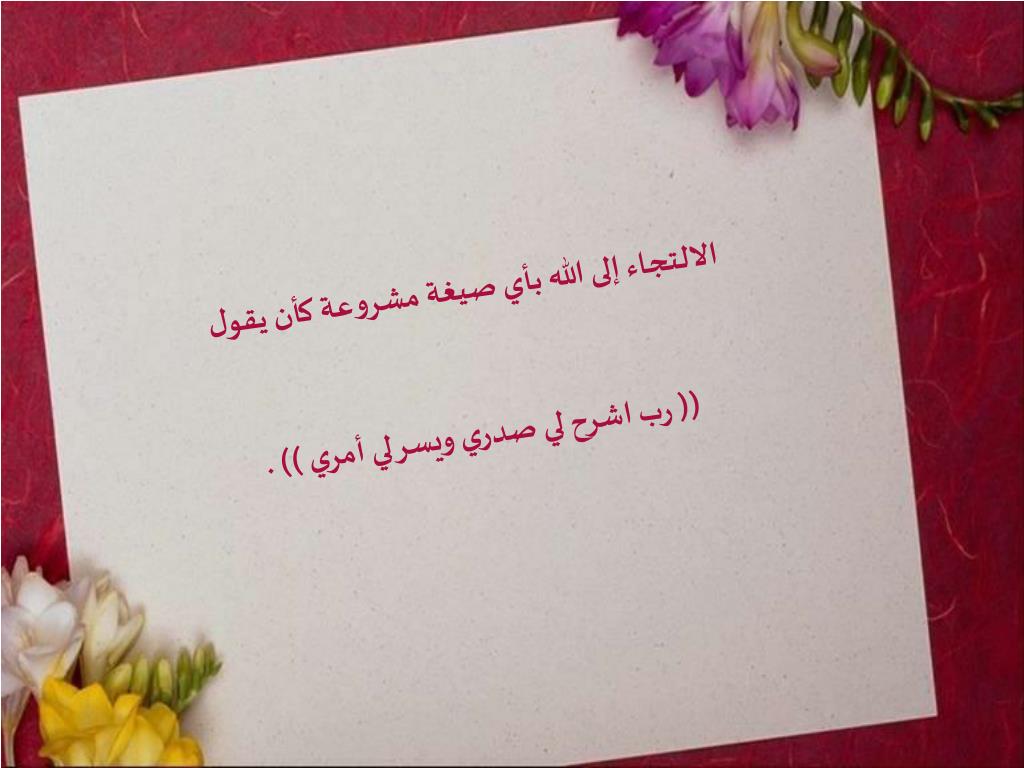 الالتجاء إلى الله بأي صيغة مشروعة كأن يقول
(( رب اشرح لي صدري ويسر لي أمري )) .